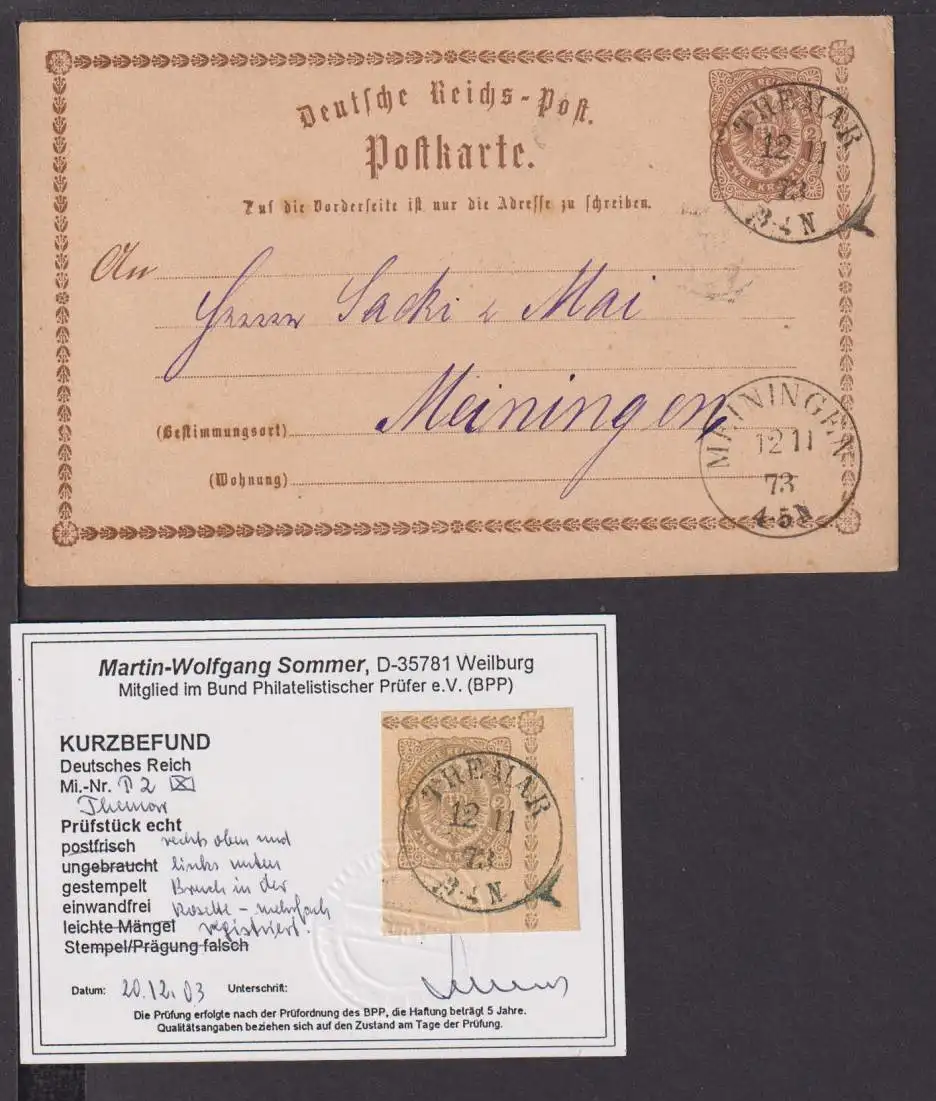 Deutsche Reichs-Post.
Postkarte.
Auf die Vorderseite ist nur die Adresse zu schreiben.
ZWEI KREUZER
THEMAR
12 11
73
3-4 N
An
Herrn Sacki & Mai
Meiningen
(Bestimmungsort)
(Wohnung)
MEININGEN
12 11
73
4-5N
Martin-Wolfgang Sommer, D-35781 Weilburg
Mitglied im Bund Philatelistischer Prüfer e.V. (BPP)
KURZBEFUND
Deutsches Reich
Mi.-Nr. P 2
Themar
Prüfstück echt
postfrisch rechts oben und
ungebraucht links unten
gestempelt Bruch in der
einwandfrei Rosette – mehrfach
leichte Mängel registriert.
Stempel/Prägung falsch
THEMAR
12 11
73
3-4 N
ZWEI KREUZER
Datum: 20.12.03 Unterschrift:
Die Prüfung erfolgte nach der Prüfordnung des BPP, die Haftung beträgt 5 Jahre.
Qualitätsangaben beziehen sich auf den Zustand am Tage der Prüfung.